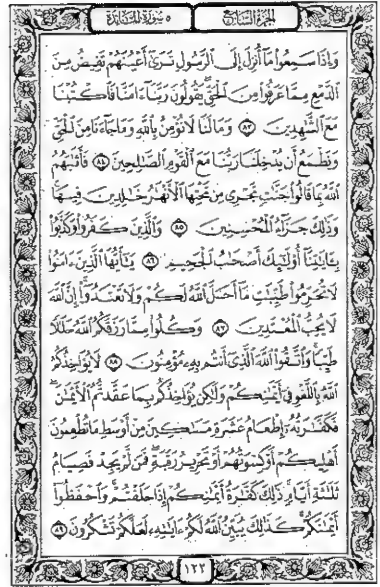 الجزء السابع
٥ سورة المائدة
وَإِذَا سَمِعُوا مَا أُنزِلَ إِلَى الرَّسُولِ تَرَىٰ أَعْيُنَهُمْ تَفِيضُ مِنَ
الدَّمْعِ مِمَّا عَرَفُوا مِنَ الْحَقِّ يَقُولُونَ رَبَّنَا آمَنَّا فَاكْتُبْنَا
مَعَ الشَّاهِدِينَ ٨٣ وَمَا لَنَا لَا نُؤْمِنُ بِاللَّهِ وَمَا جَاءَنَا مِنَ الْحَقِّ
وَنَطْمَعُ أَن يُدْخِلَنَا رَبُّنَا مَعَ الْقَوْمِ الصَّالِحِينَ ٨٤ فَأَثَابَهُمُ
اللَّهُ بِمَا قَالُوا جَنَّاتٍ تَجْرِي مِن تَحْتِهَا الْأَنْهَارُ خَالِدِينَ فِيهَا
وَذَٰلِكَ جَزَاءُ الْمُحْسِنِينَ ٨٥ وَالَّذِينَ كَفَرُوا وَكَذَّبُوا
بِآيَاتِنَا أُولَٰئِكَ أَصْحَابُ الْجَحِيمِ ٨٦ يَا أَيُّهَا الَّذِينَ آمَنُوا
لَا تُحَرِّمُوا طَيِّبَاتِ مَا أَحَلَّ اللَّهُ لَكُمْ وَلَا تَعْتَدُوا إِنَّ اللَّهَ
لَا يُحِبُّ الْمُعْتَدِينَ ٨٧ وَكُلُوا مِمَّا رَزَقَكُمُ اللَّهُ حَلَالًا
طَيِّبًا وَاتَّقُوا اللَّهَ الَّذِي أَنتُم بِهِ مُؤْمِنُونَ ٨٨ لَا يُؤَاخِذُكُمُ
اللَّهُ بِاللَّغْوِ فِي أَيْمَانِكُمْ وَلَٰكِن يُؤَاخِذُكُم بِمَا عَقَّدتُّمُ الْأَيْمَانَ
فَكَفَّارَتُهُ إِطْعَامُ عَشَرَةِ مَسَاكِينَ مِنْ أَوْسَطِ مَا تُطْعِمُونَ
أَهْلِيكُمْ أَوْ كِسْوَتُهُمْ أَوْ تَحْرِيرُ رَقَبَةٍ فَمَن لَّمْ يَجِدْ فَصِيَامُ
ثَلَاثَةِ أَيَّامٍ ذَٰلِكَ كَفَّارَةُ أَيْمَانِكُمْ إِذَا حَلَفْتُمْ وَاحْفَظُوا
أَيْمَانَكُمْ كَذَٰلِكَ يُبَيِّنُ اللَّهُ لَكُمْ آيَاتِهِ لَعَلَّكُمْ تَشْكُرُونَ ٨٩
١٢٢